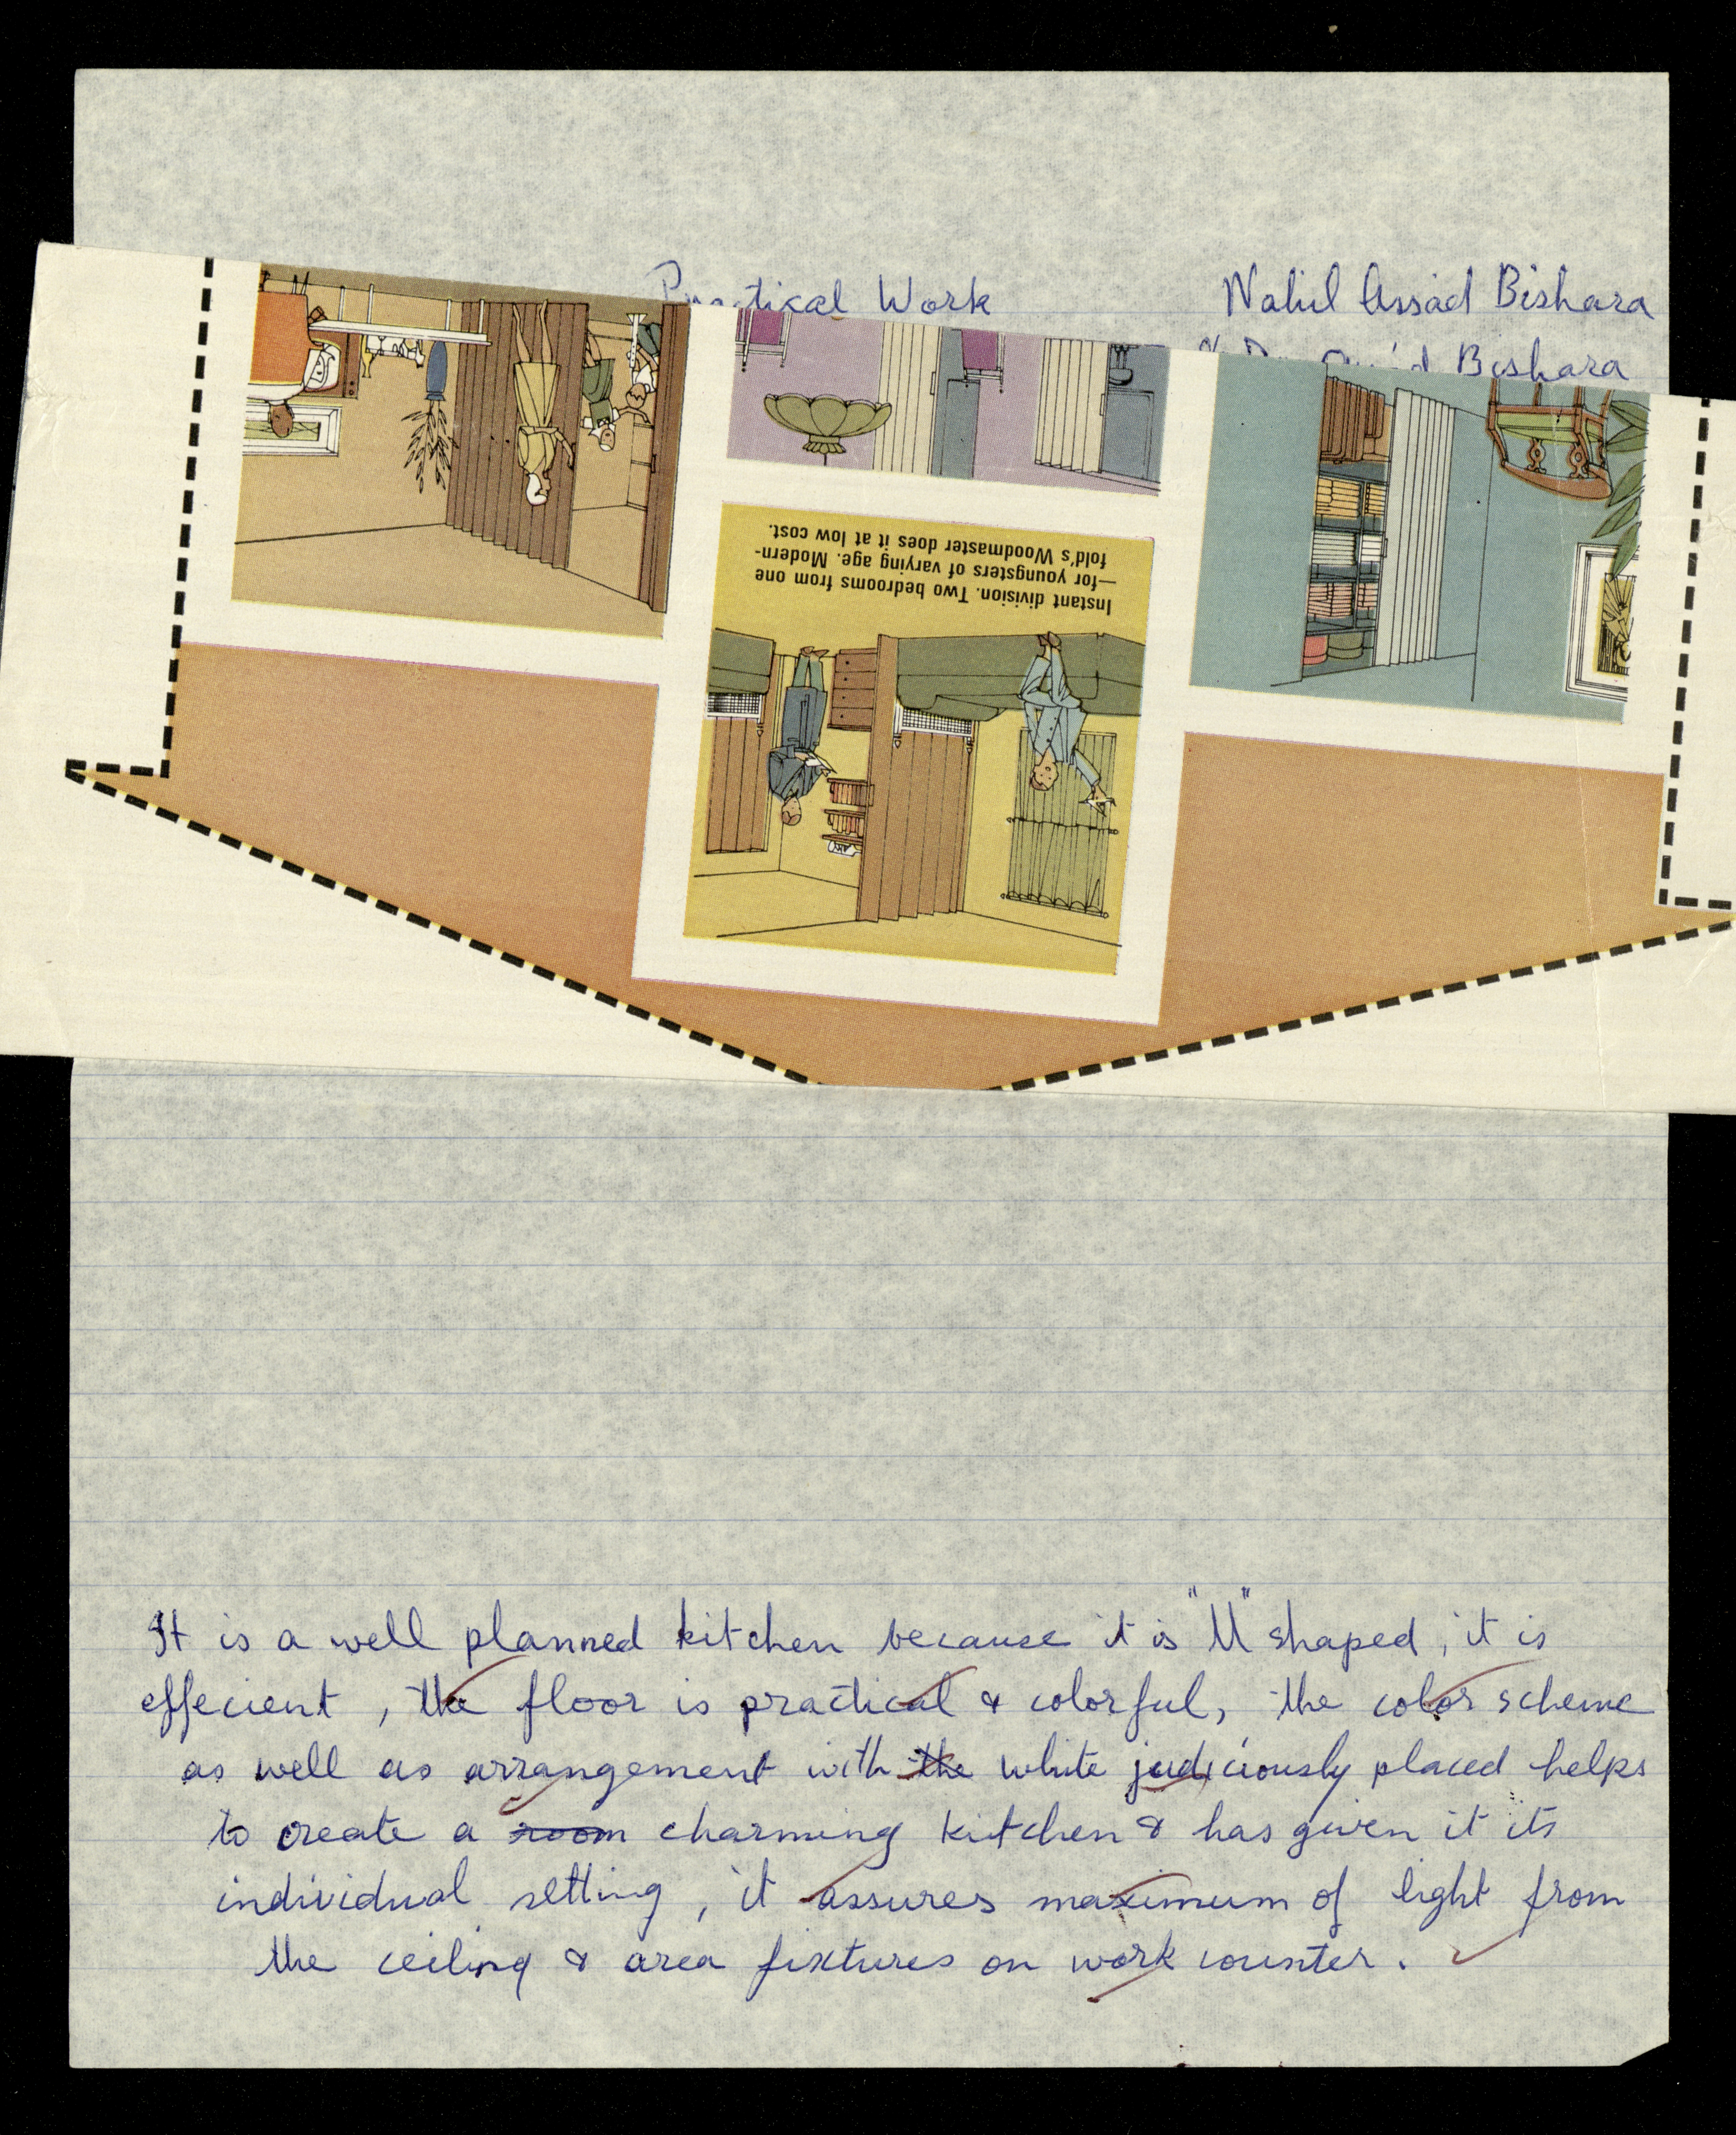 Practical Work
Nahil Assad Bishara
Bishara
Instant division. Two bedrooms from one
—for youngsters of varying age. Modern-
fold's Woodmaster does it at low cost.
It is a well planned kitchen because it is "U" shaped, it is
effecient, the floor is practical & colorful, the color scheme
as well as arrangement with the white judiciously placed helps
to create a room charming kitchen & has given it its
individual setting, it assures maximum of light from
the ceiling & area fixtures on work counter.